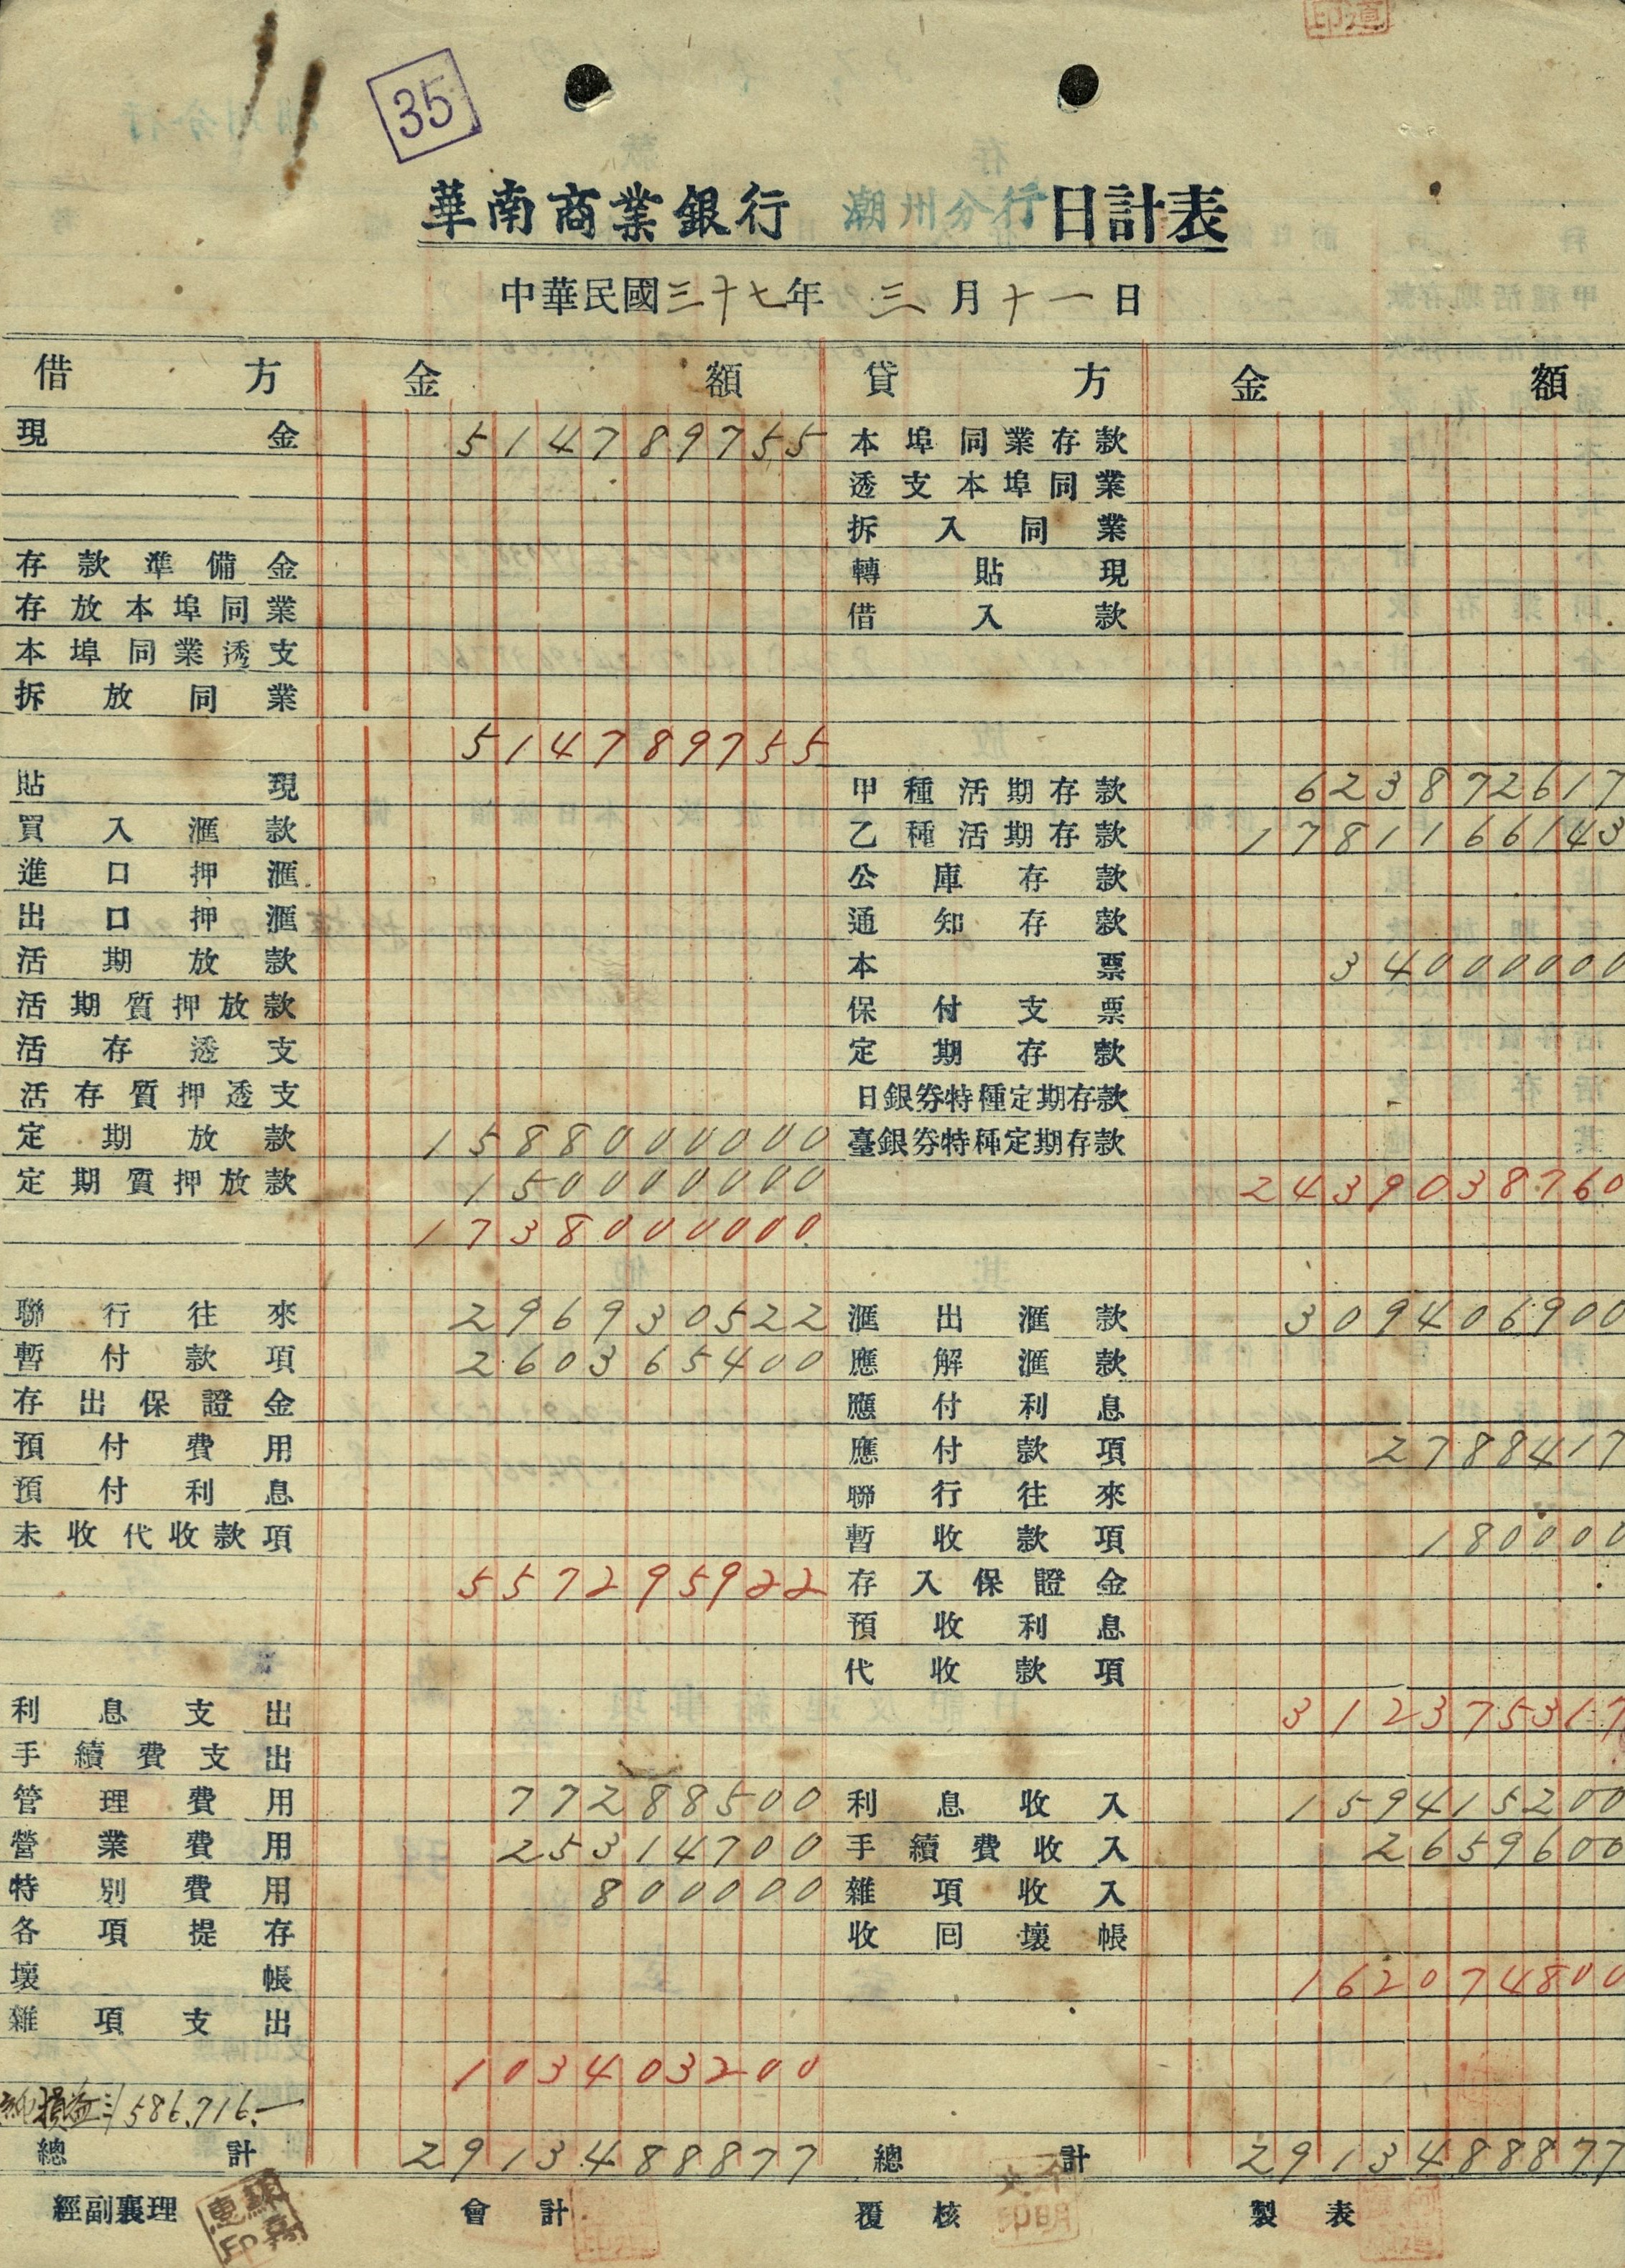 35
華南商業銀行 潮州分行 日計表
中華民國三十七年 三月十一日
借方 金額 貸方 金額
現金 514789755 本埠同業存款
透支本埠同業
拆入同業
存款準備金 轉貼現
存放本埠同業 借入款
本埠同業透支
拆放同業
514789755
貼現 甲種活期存款 623872617
買入滙款 乙種活期存款 1781166143
進口押滙 公庫存款
出口押滙 通知存款
活期放款 本票 34000000
活期質押放款 保付支票
活存透支 定期存款
活存質押透支 日銀券特種定期存款
定期放款 1588000000 臺銀券特種定期存款
定期質押放款 150000000 2439038760
1738000000
聯行往來 296930522 滙出滙款 309406900
暫付款項 260365400 應解滙款
存出保證金 應付利息
預付費用 應付款項 2788417
預付利息 聯行往來
未收代收款項 暫收款項 180000
557295922 存入保證金
預收利息
代收款項
利息支出 312375317
手續費支出
管理費用 77288500 利息收入 159415200
營業費用 25314700 手續費收入 2659600
特別費用 800000 雜項收入
各項提存 收回壞帳
壞帳 162074800
雜項支出
103403200
純損益 586,716.—
總計 2913488877 總計 2913488877
經副襄理 會計 覆核 製表